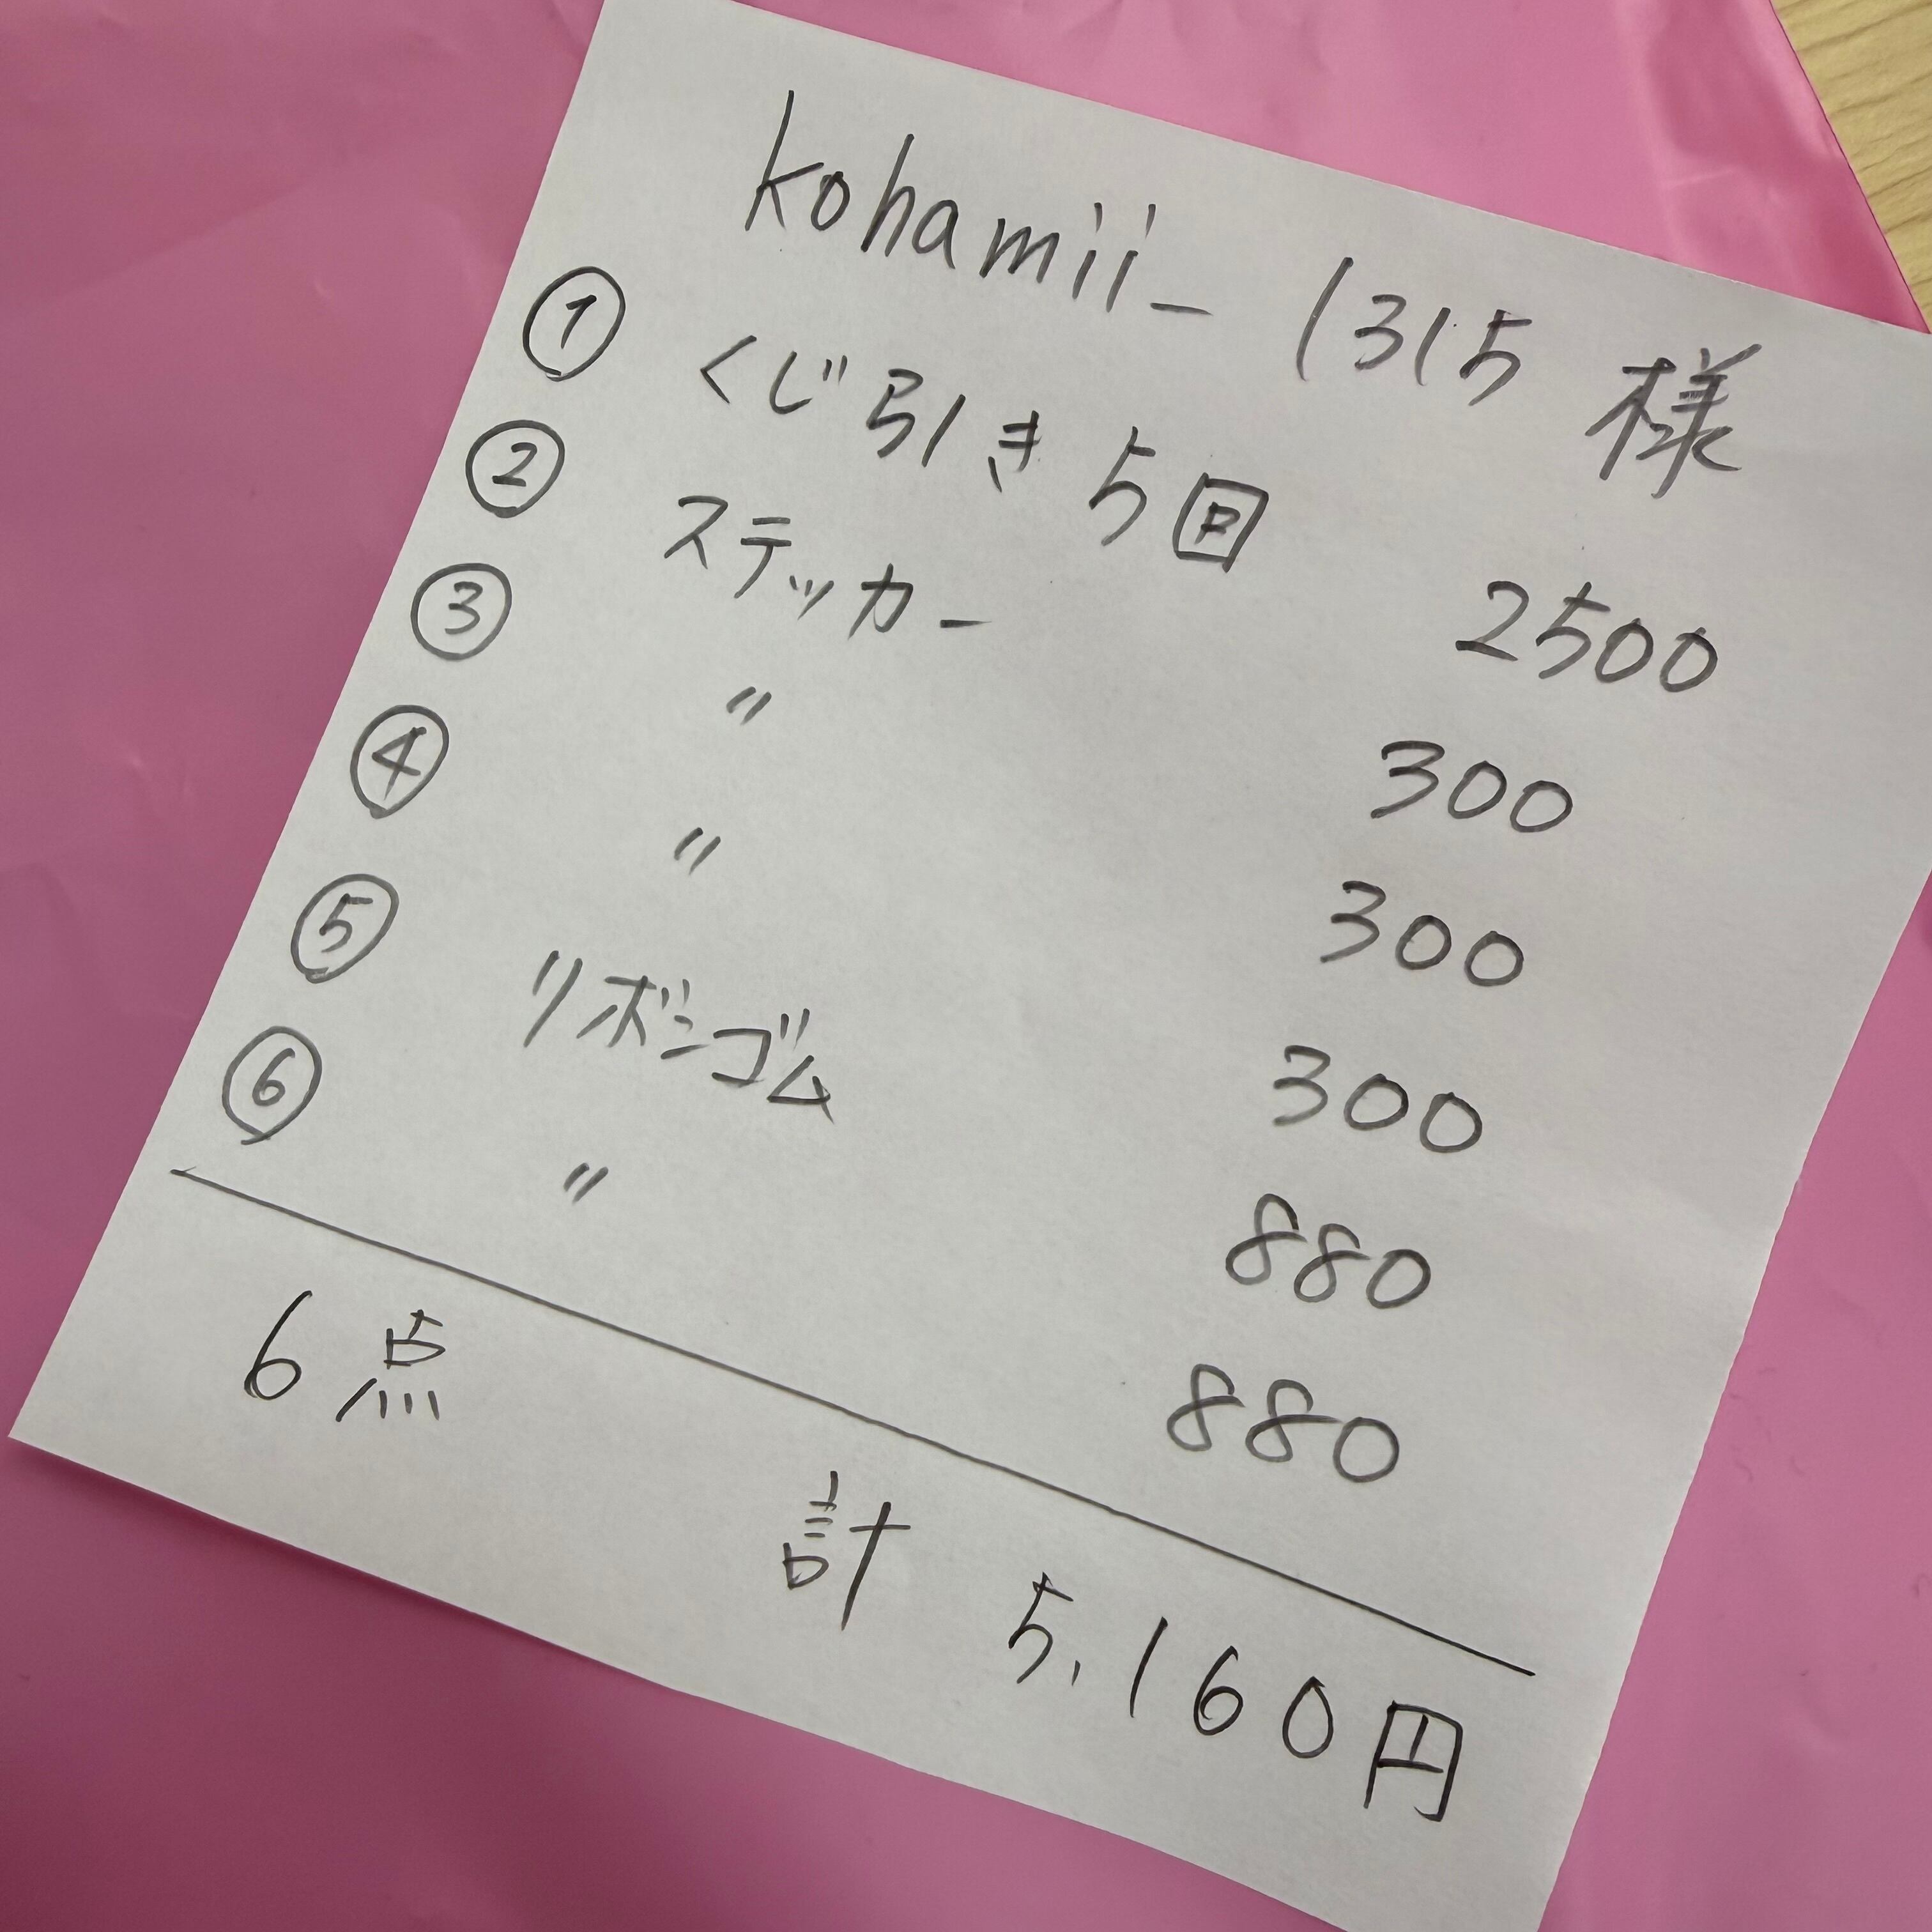 kohamii_1315 様
① くじ引き5回 2500
② ステッカー 300
③ 〃 300
④ 〃 300
⑤ リボンゴム 880
⑥ 〃 880
6点 計 5,160円